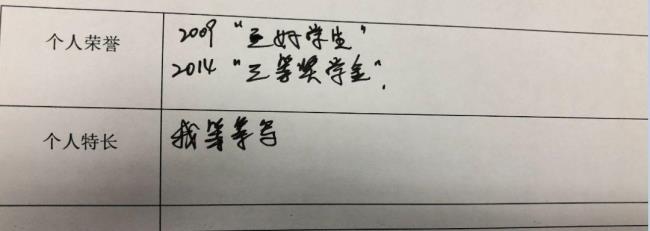 个人荣誉
2009 "三好学生"
2014 "三等奖学金".
个人特长
我等等